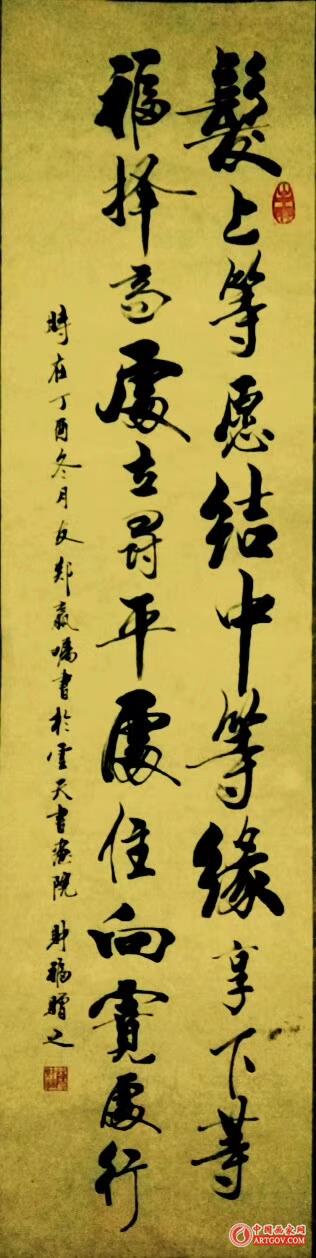 髮上等愿結中等緣享下等
福择高處立尋平處住向寬處行
時在丁酉冬月友鄭嬴囑書於雲天書畫院 財福贈之
中国画家网
ARTGOV.COM